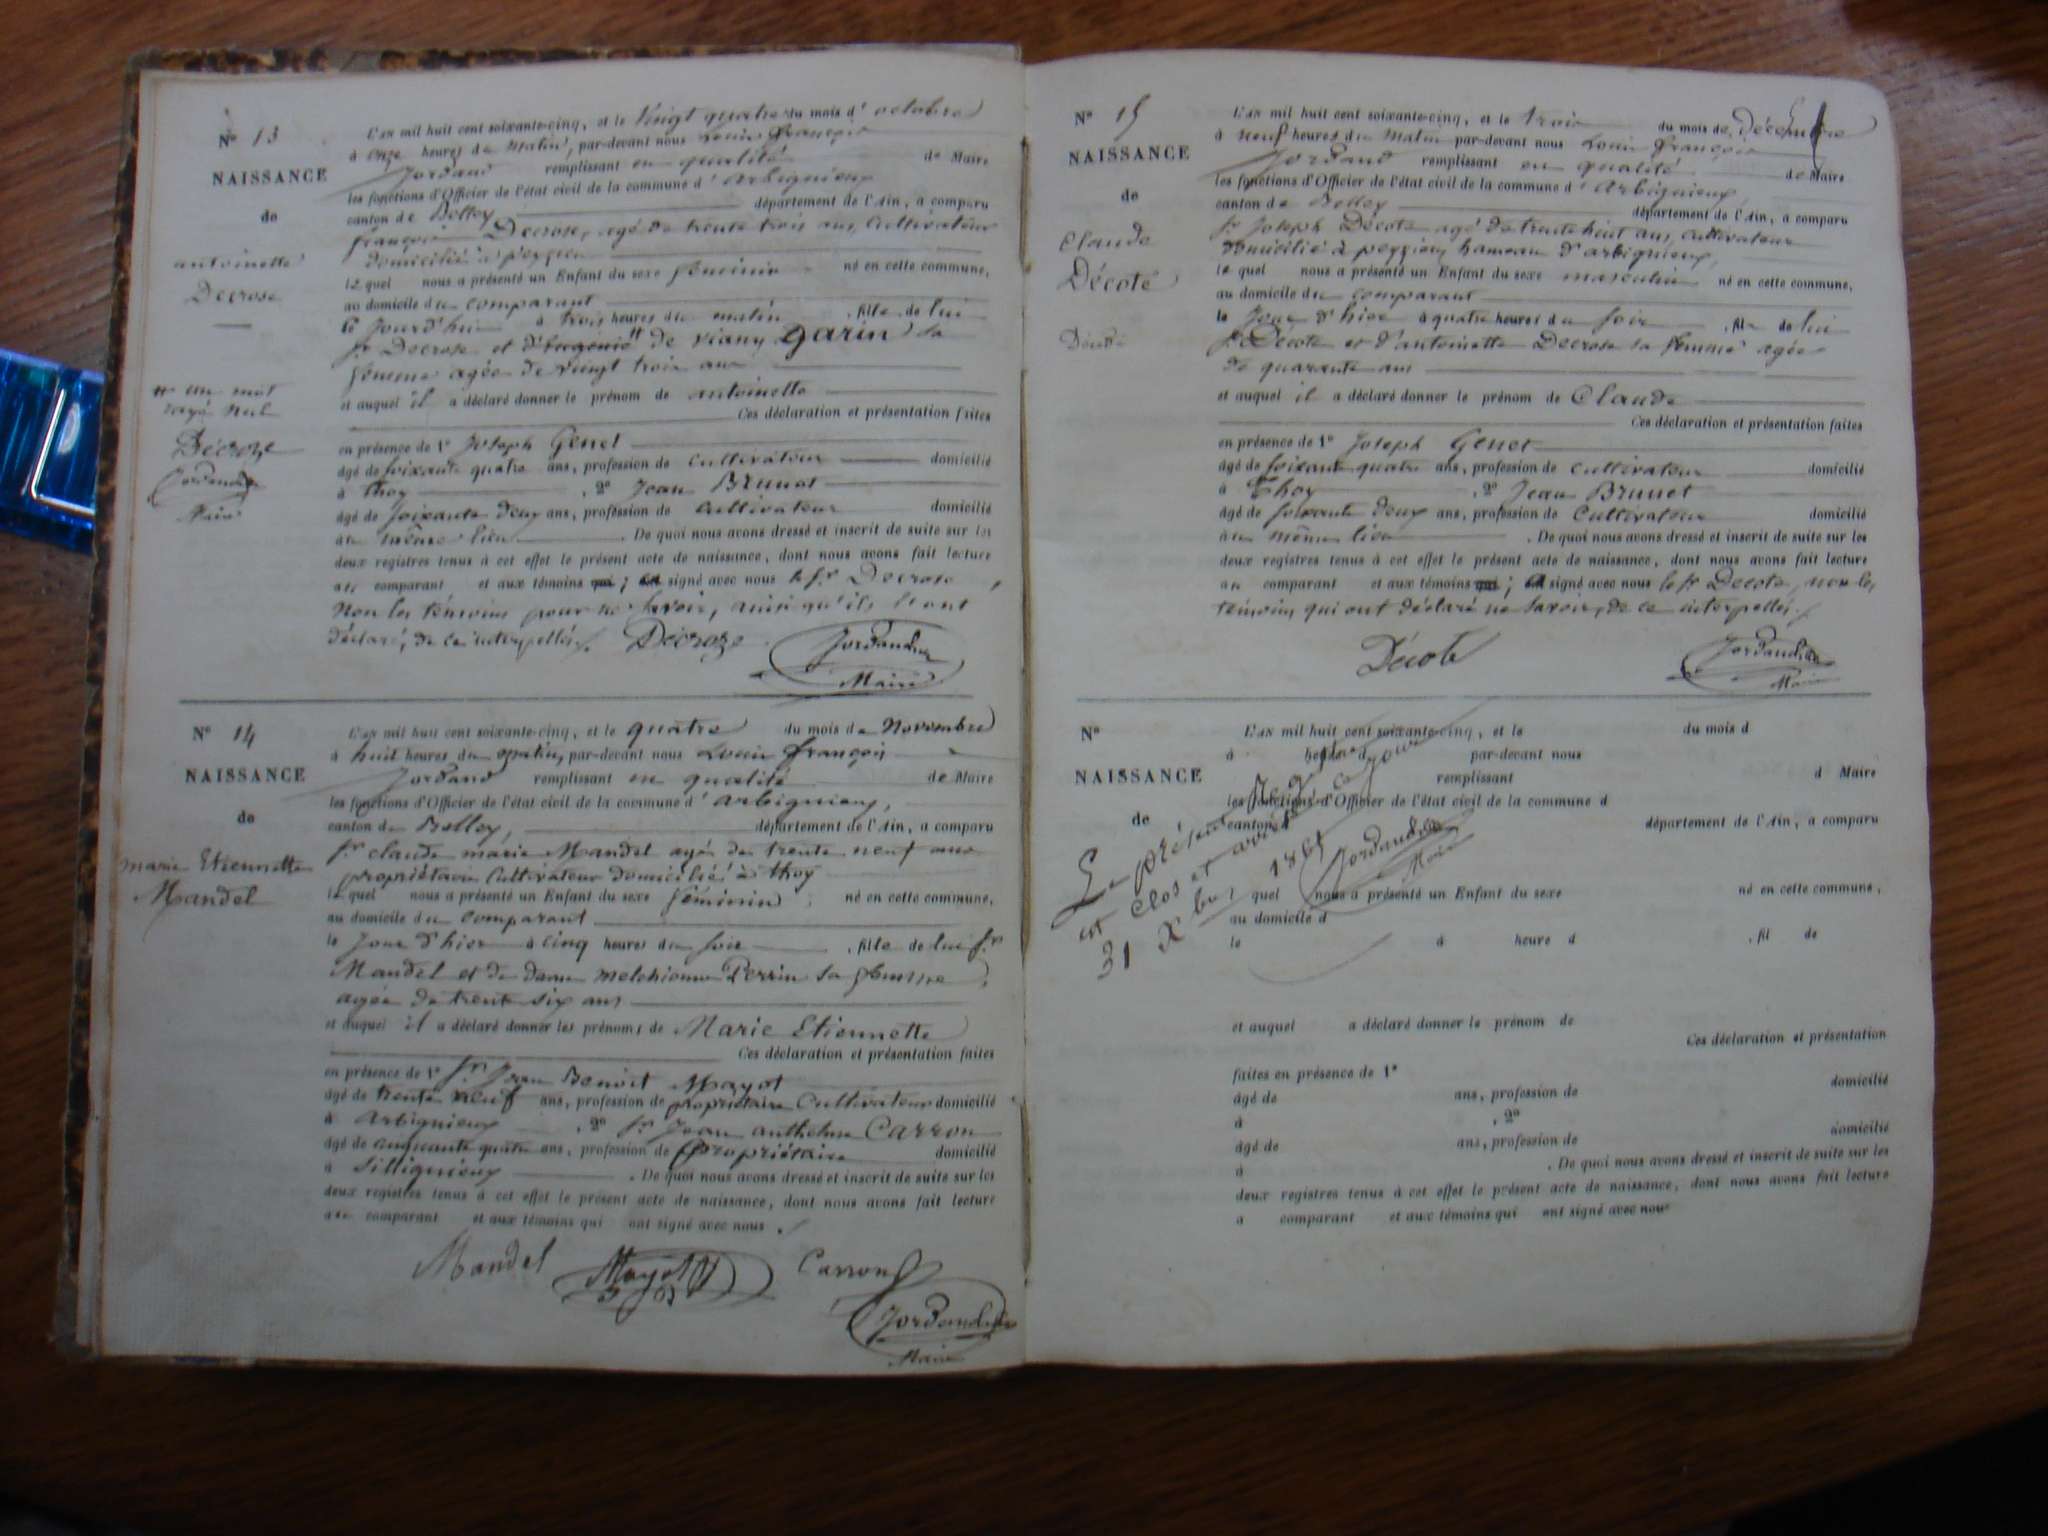 N° 13
NAISSANCE
de
antoinette
Decrose
un mot
rayé nul
Décroze
Jordand
Maire
L'an mil huit cent soixante-cinq, et le Vingt quatre du mois d' octobre
à onze heures du matin, par-devant nous Louis françois
Jordand remplissant en qualité de Maire
les fonctions d'Officier de l'état civil de la commune d' arbignieux
canton de Belley département de l'Ain, a comparu
françois Decrose, agé de trente trois ans, Cultivateur
domicilié à peyzieu
lequel nous a présenté un Enfant du sexe féminin né en cette commune,
au domicile du comparant
le Jourd'hui à trois heures du matin, fille de lui
sr Decrose et d' de Viany Garin sa
femme agée de vingt trois ans
et auquel il a déclaré donner le prénom de antoinette
Ces déclaration et présentation faites
en présence de 1° Joseph Genet
âgé de soixante quatre ans, profession de cultivateur domicilié
à thoy, 2° Jean Brunet
âgé de soixante deux ans, profession de cultivateur domicilié
au même lieu. De quoi nous avons dressé et inscrit de suite sur les
deux registres tenus à cet effet le présent acte de naissance, dont nous avons fait lecture
au comparant et aux témoins qui; a signé avec nous le sr Decrose,
Non les témoins pour ne savoir, ainsi qu'ils l'ont
déclaré, de ce interpellés. Décroze Jordand
Maire
N° 14
NAISSANCE
de
marie Etiennette
Mandel
L'an mil huit cent soixante-cinq, et le quatre du mois de Novembre
à huit heures du matin, par-devant nous Louis françois
Jordand remplissant en qualité de Maire
les fonctions d'Officier de l'état civil de la commune d' arbignieux,
canton de Belley, département de l'Ain, a comparu
sr claude marie Mandel agé de trente neuf ans
propriétaire Cultivateur domicilié à thoy
lequel nous a présenté un Enfant du sexe féminin né en cette commune,
au domicile du comparant
le Jour d'hier à cinq heures du soir, fille de lui sr
Mandel et de dame melchionne Perrin sa femme,
agée de trente six ans
et auquel il a déclaré donner les prénoms de Marie Etiennette
Ces déclaration et présentation faites
en présence de 1° sr Jean Benoit Mayot
âgé de trente neuf ans, profession de propriétaire Cultivateur domicilié
à arbignieux, 2° sr Jean anthelme Carron
âgé de cinquante quatre ans, profession de propriétaire domicilié
à Sillignieux. De quoi nous avons dressé et inscrit de suite sur les
deux registres tenus à cet effet le présent acte de naissance, dont nous avons fait lecture
au comparant et aux témoins qui ont signé avec nous.
Mandel Mayot Carron
Jordand
Maire
N° 15
NAISSANCE
de
Claude
Décote
L'an mil huit cent soixante-cinq, et le trois du mois de Décembre
à neuf heures du matin par-devant nous Louis françois
Jordand remplissant en qualité de Maire
les fonctions d'Officier de l'état civil de la commune d' arbignieux,
canton de Belley département de l'Ain, a comparu
sr Joseph Décote agé de trente huit ans, cultivateur
domicilié à peyzieu hameau d'arbignieux,
lequel nous a présenté un Enfant du sexe masculin né en cette commune,
au domicile du comparant
le Jour d'hier à quatre heures du soir, fils de lui
sr Décote et d'antoinette Decrose sa femme agée
de quarante ans
et auquel il a déclaré donner le prénom de Claude
Ces déclaration et présentation faites
en présence de 1° Joseph Genet
âgé de soixante quatre ans, profession de cultivateur domicilié
à Thoy, 2° Jean Brunet
âgé de soixante deux ans, profession de Cultivateur domicilié
au même lieu. De quoi nous avons dressé et inscrit de suite sur les
deux registres tenus à cet effet le présent acte de naissance, dont nous avons fait lecture
au comparant et aux témoins qui; a signé avec nous le sr Decote, non les
témoins qui ont déclaré ne savoir, de ce interpellés.
Décote Jordand
Maire
N°
NAISSANCE
de
L'an mil huit cent soixante-cinq, et le du mois d
à heures d par-devant nous
remplissant d Maire
les fonctions d'Officier de l'état civil de la commune d
canton d département de l'Ain, a comparu
quel nous a présenté un Enfant du sexe né en cette commune,
au domicile d
le à heure d, fil de
et auquel a déclaré donner le prénom de
Ces déclaration et présentation
faites en présence de 1°
âgé de ans, profession de domicilié
à, 2°
âgé de ans, profession de domicilié
à. De quoi nous avons dressé et inscrit de suite sur les
deux registres tenus à cet effet le présent acte de naissance, dont nous avons fait lecture
a comparant et aux témoins qui ont signé avec nous
Le présent Registre
est clos et arrêté ce jour
31 Xbre 1865
Jordand
Maire